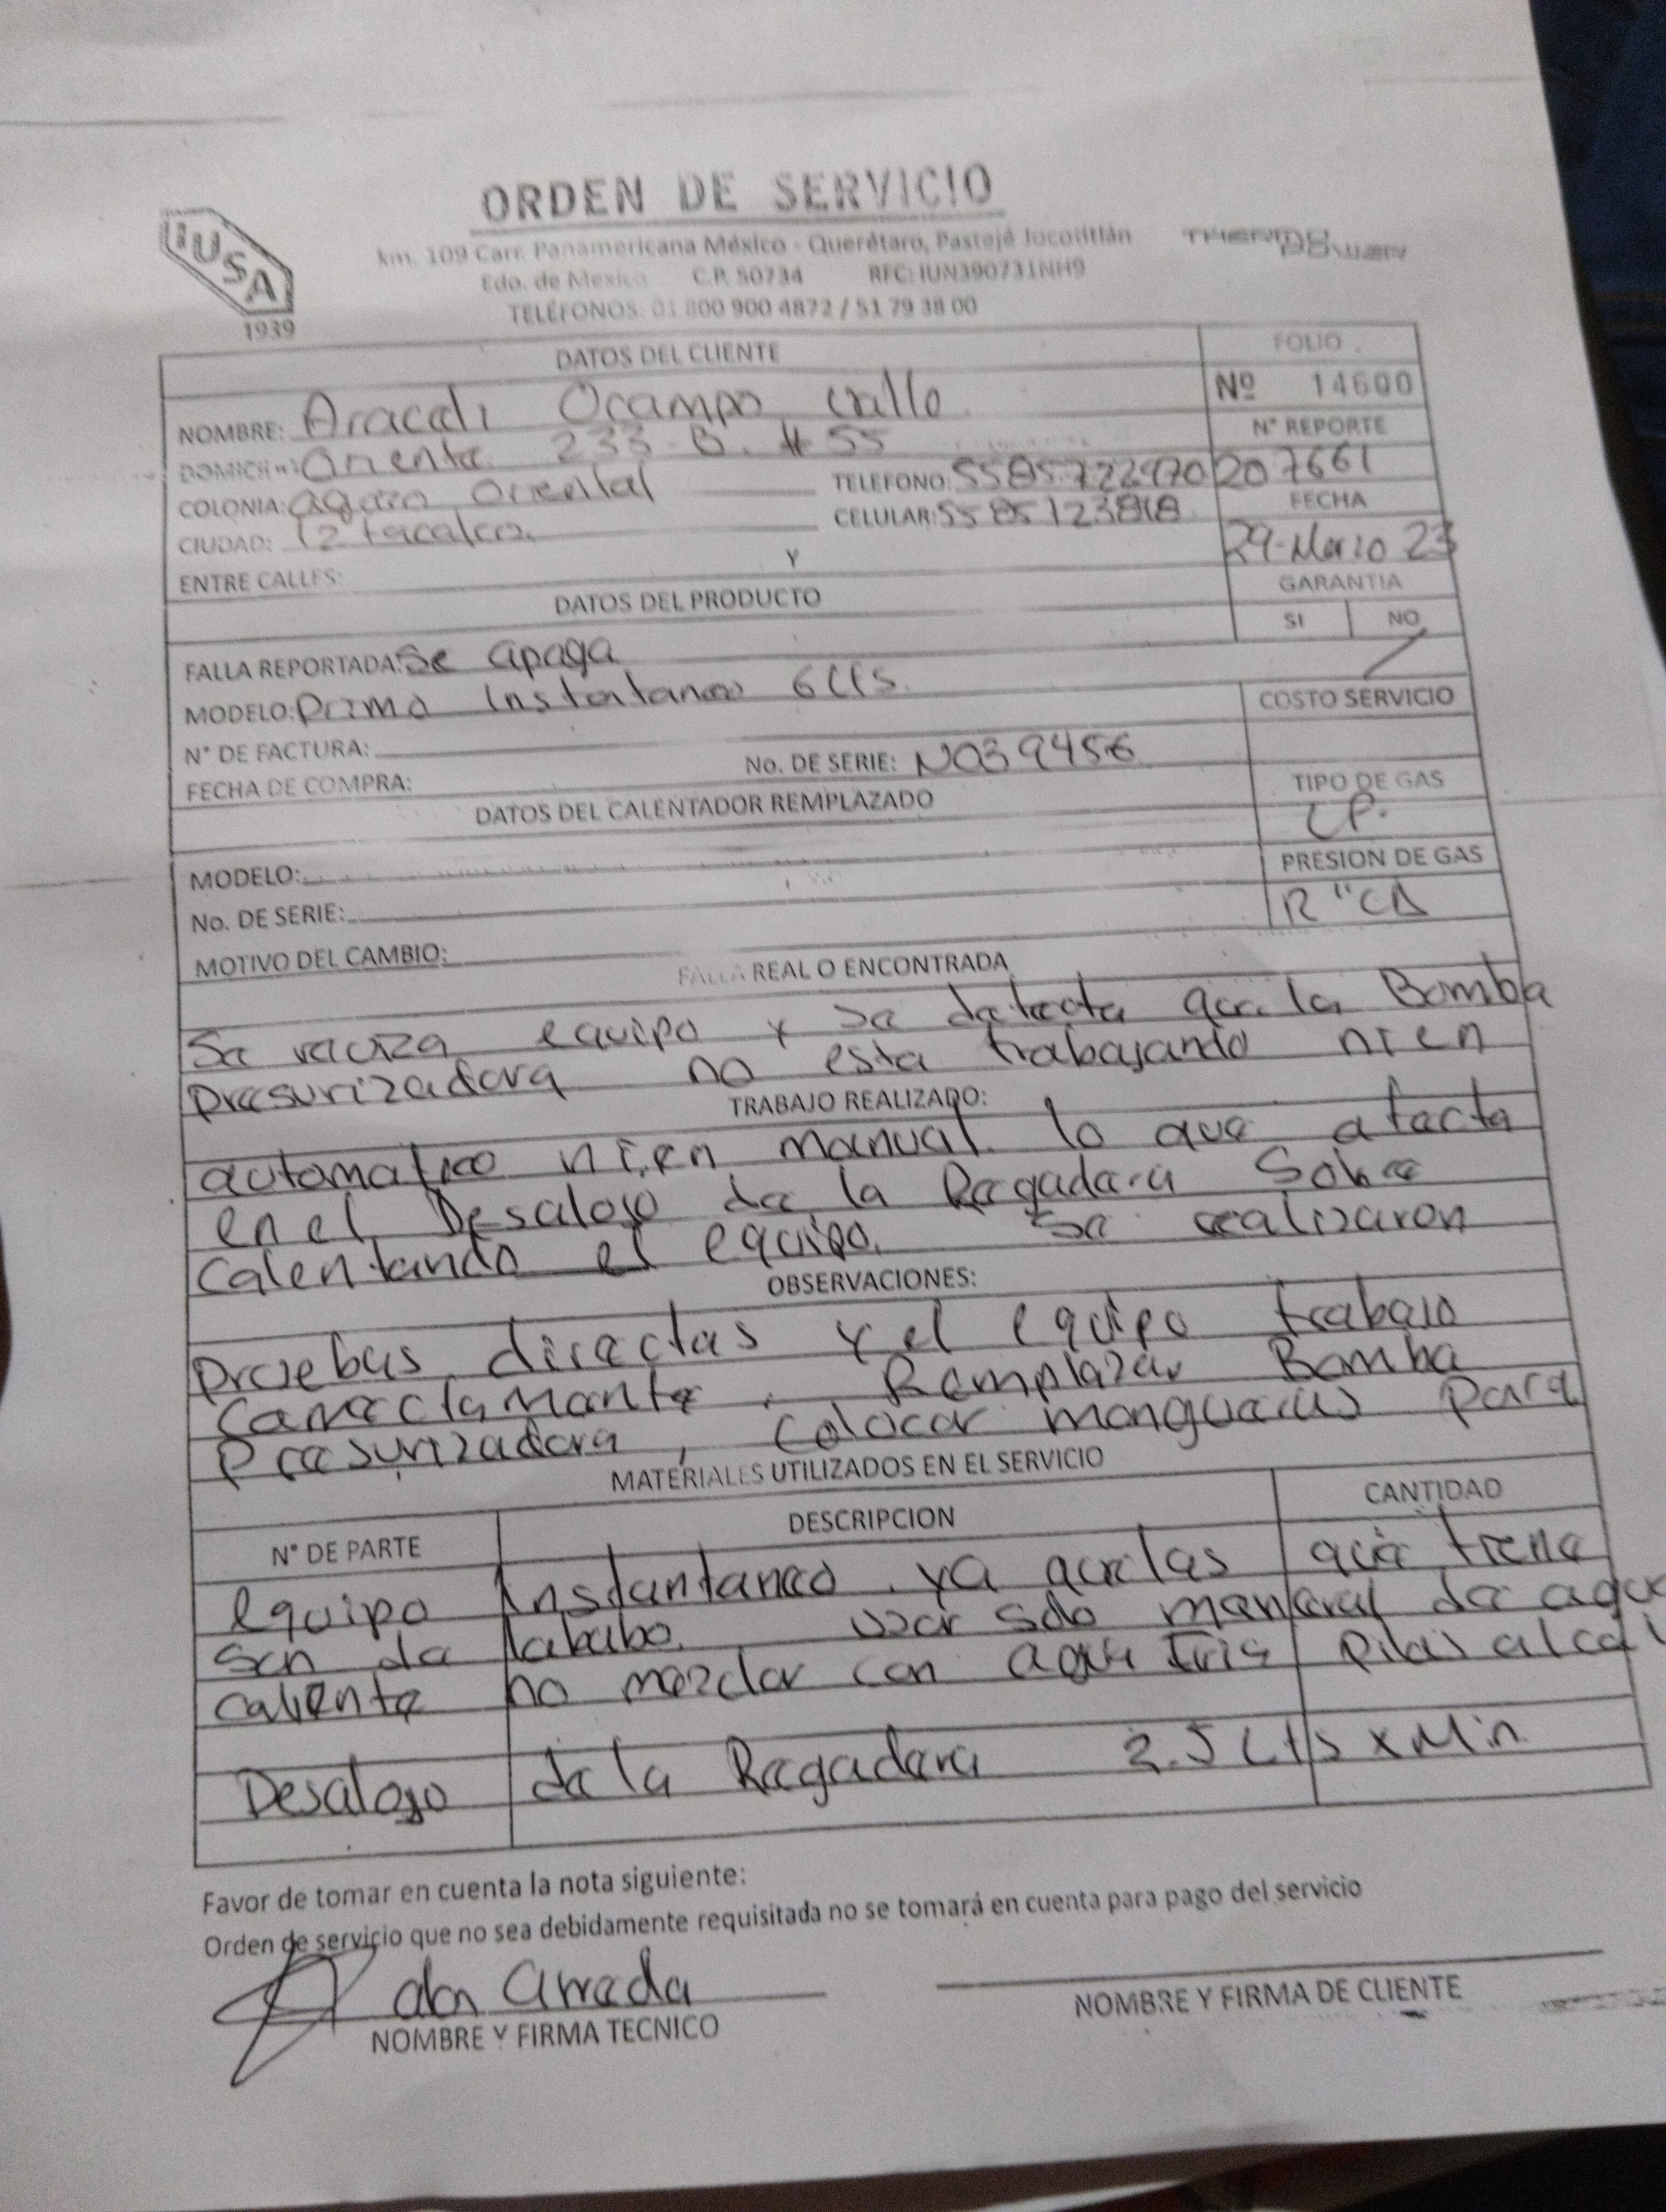 ORDEN DE SERVICIO
IUSA
1939
km. 109 Carr. Panamericana México - Querétaro, Pastejé Jocotitlán
THERMO POWER
Edo. de Mexico C.P. 50734 RFC: IUN390731NH9
TELÉFONOS: 01 800 900 4872 / 51 79 38 00
DATOS DEL CLIENTE
FOLIO
Nº 14600
NOMBRE: Araceli Ocampo
N° REPORTE
DOMICILIO: Oriente 233-B. # 55
TELEFONO: 207661
COLONIA: Oriental
FECHA
CELULAR:
CIUDAD: Iztacalco.
29-Marzo 23
ENTRE CALLES: Y
GARANTIA
DATOS DEL PRODUCTO
SI NO
FALLA REPORTADA: Se apaga
MODELO: Prima Instantaneo 6 Lts.
COSTO SERVICIO
N° DE FACTURA:
No. DE SERIE: N039456
FECHA DE COMPRA:
TIPO DE GAS
DATOS DEL CALENTADOR REMPLAZADO
LP.
MODELO:
PRESION DE GAS
No. DE SERIE:
MOTIVO DEL CAMBIO:
FALLA REAL O ENCONTRADA
Se equipo y se detecta que la Bomba
Presurizadora no esta trabajando ni en
TRABAJO REALIZADO:
automatico ni en manual. lo que afecta
en el Desalojo de la Regadera Sobre
calentando el equipo. Se realizaron
OBSERVACIONES:
Pruebas directas y el equipo trabajo
Correctamente. Remplazar Bomba
Presurizadora, Colocar mangueras para
MATERIALES UTILIZADOS EN EL SERVICIO
N° DE PARTE DESCRIPCION CANTIDAD
equipo Instantaneo. ya que las que tiene
son de lababo. usar solo maneral de agua
caliente no mezclar con agua fria pilas alcali
Desalojo de la Regadera Lts x Min.
Favor de tomar en cuenta la nota siguiente:
Orden de servicio que no sea debidamente requisitada no se tomará en cuenta para pago del servicio
NOMBRE Y FIRMA TECNICO
NOMBRE Y FIRMA DE CLIENTE